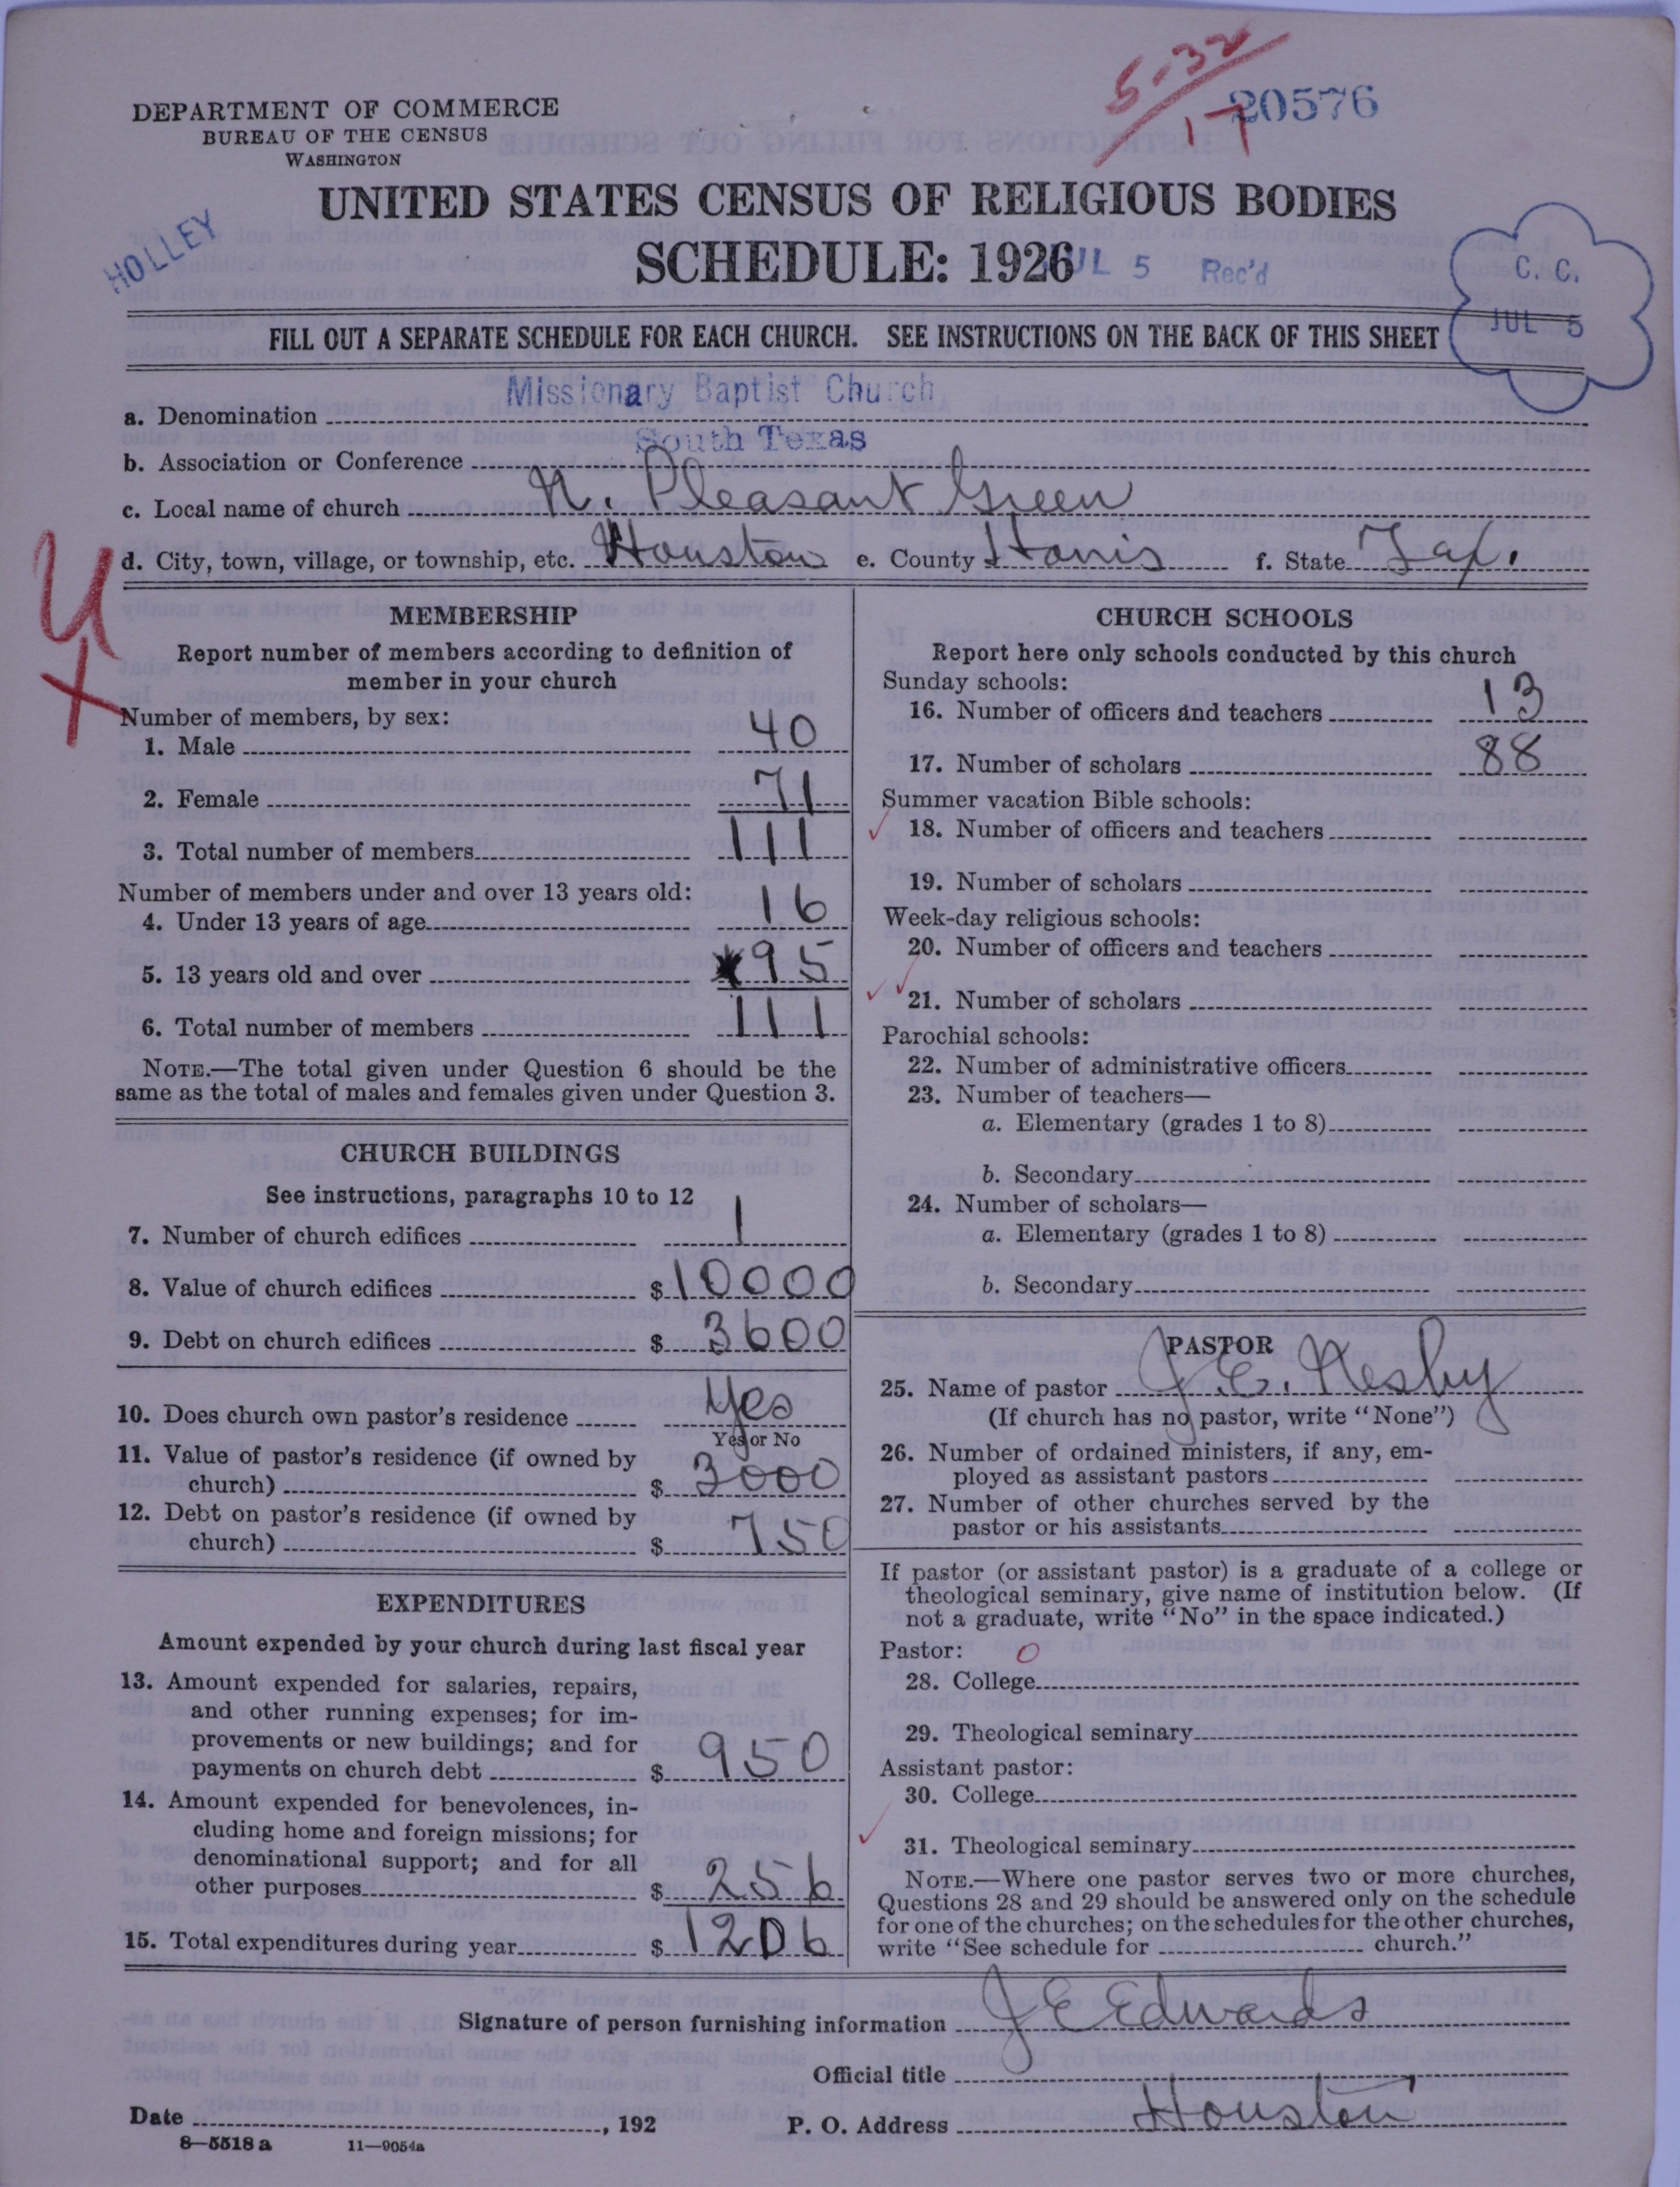 5-32
17
20576
DEPARTMENT OF COMMERCE
BUREAU OF THE CENSUS
WASHINGTON
UNITED STATES CENSUS OF RELIGIOUS BODIES
HOLLEY
SCHEDULE: 1926
JUL 5 Rec'd
C. C.
JUL 5
FILL OUT A SEPARATE SCHEDULE FOR EACH CHURCH. SEE INSTRUCTIONS ON THE BACK OF THIS SHEET
a. Denomination Missionary Baptist Church
b. Association or Conference South Texas
c. Local name of church N. Pleasant Green
d. City, town, village, or township, etc. Houston e. County Harris f. State Tex.
MEMBERSHIP
Report number of members according to definition of
member in your church
Number of members, by sex:
1. Male 40
2. Female 71
3. Total number of members 111
Number of members under and over 13 years old:
4. Under 13 years of age 16
5. 13 years old and over 95
6. Total number of members 111
NOTE.—The total given under Question 6 should be the
same as the total of males and females given under Question 3.
CHURCH BUILDINGS
See instructions, paragraphs 10 to 12
7. Number of church edifices 1
8. Value of church edifices $10000
9. Debt on church edifices $3600
10. Does church own pastor's residence Yes
Yes or No
11. Value of pastor's residence (if owned by
church) $3000
12. Debt on pastor's residence (if owned by
church) $750
EXPENDITURES
Amount expended by your church during last fiscal year
13. Amount expended for salaries, repairs,
and other running expenses; for im-
provements or new buildings; and for
payments on church debt $950
14. Amount expended for benevolences, in-
cluding home and foreign missions; for
denominational support; and for all
other purposes $256
15. Total expenditures during year $1206
CHURCH SCHOOLS
Report here only schools conducted by this church
Sunday schools:
16. Number of officers and teachers 13
17. Number of scholars 88
Summer vacation Bible schools:
18. Number of officers and teachers
19. Number of scholars
Week-day religious schools:
20. Number of officers and teachers
21. Number of scholars
Parochial schools:
22. Number of administrative officers
23. Number of teachers—
a. Elementary (grades 1 to 8)
b. Secondary
24. Number of scholars—
a. Elementary (grades 1 to 8)
b. Secondary
PASTOR
25. Name of pastor J. E. Nesby
(If church has no pastor, write "None")
26. Number of ordained ministers, if any, em-
ployed as assistant pastors
27. Number of other churches served by the
pastor or his assistants
If pastor (or assistant pastor) is a graduate of a college or
theological seminary, give name of institution below. (If
not a graduate, write "No" in the space indicated.)
Pastor: 0
28. College
29. Theological seminary
Assistant pastor:
30. College
31. Theological seminary
NOTE.—Where one pastor serves two or more churches,
Questions 28 and 29 should be answered only on the schedule
for one of the churches; on the schedules for the other churches,
write "See schedule for church."
Signature of person furnishing information J E Edwards
Official title
Date , 192 P. O. Address Houston
8—5518 a 11—9054a